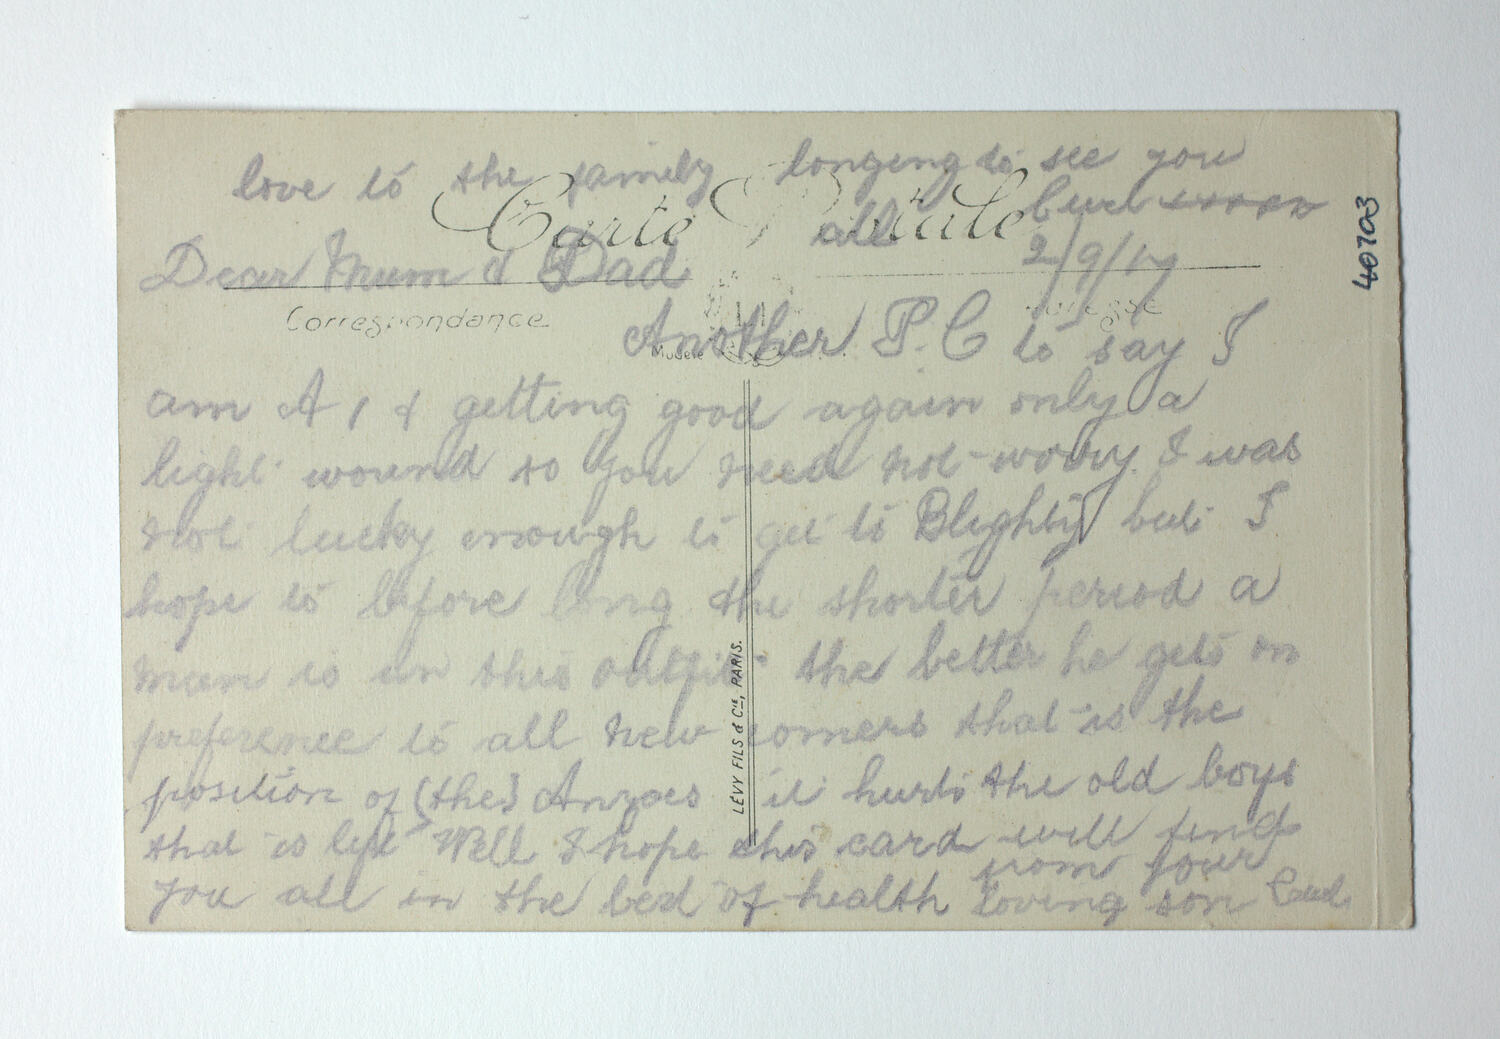 love to the family longing to see you
all
xxxxx
Carte Postale
2/9/17
Dear Mum & Dad
Correspondance
Adresse
Another P.C to say I
am A 1 & getting good again only a
light wound so you need not worry. I was
not lucky enough to get to Blighty but I
hope to before long the shorter period a
man is in this outfit the better he gets on
preference to all new comers that is the
position of (the) Anzacs it hurts the old boys
that is left Well I hope this card will find
you all in the best of health from your
loving son
LÉVY FILS & Cie, PARIS.
40703